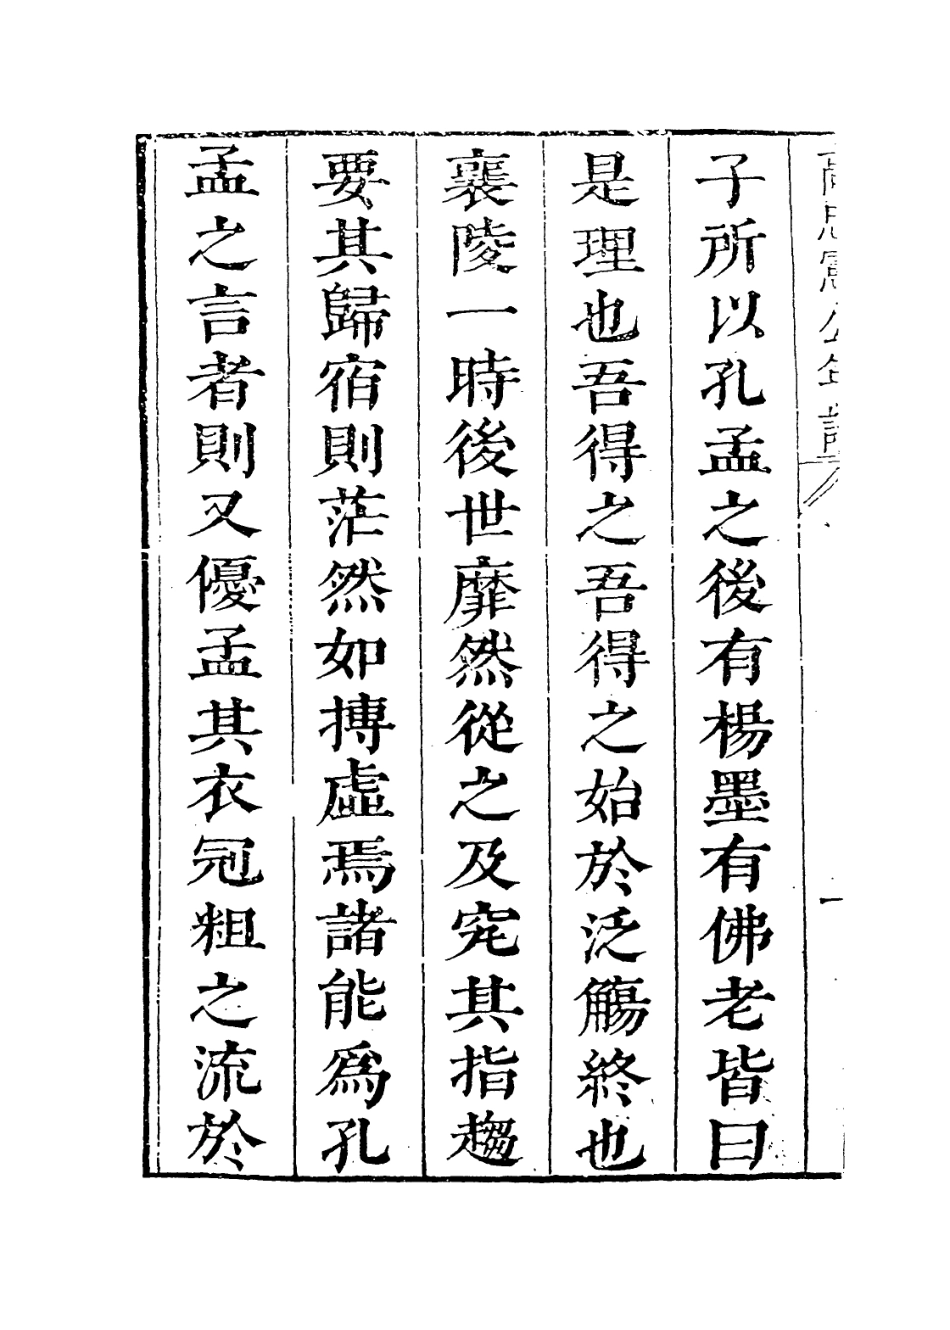 高忠憲公年譜
一
子所以孔孟之後有楊墨有佛老皆曰
是理也吾得之吾得之始於泛觴終也
襄陵一時後世靡然從之及究其指趨
要其歸宿則茫然如摶虛焉諸能爲孔
孟之言者則又優孟其衣冠粗之流於